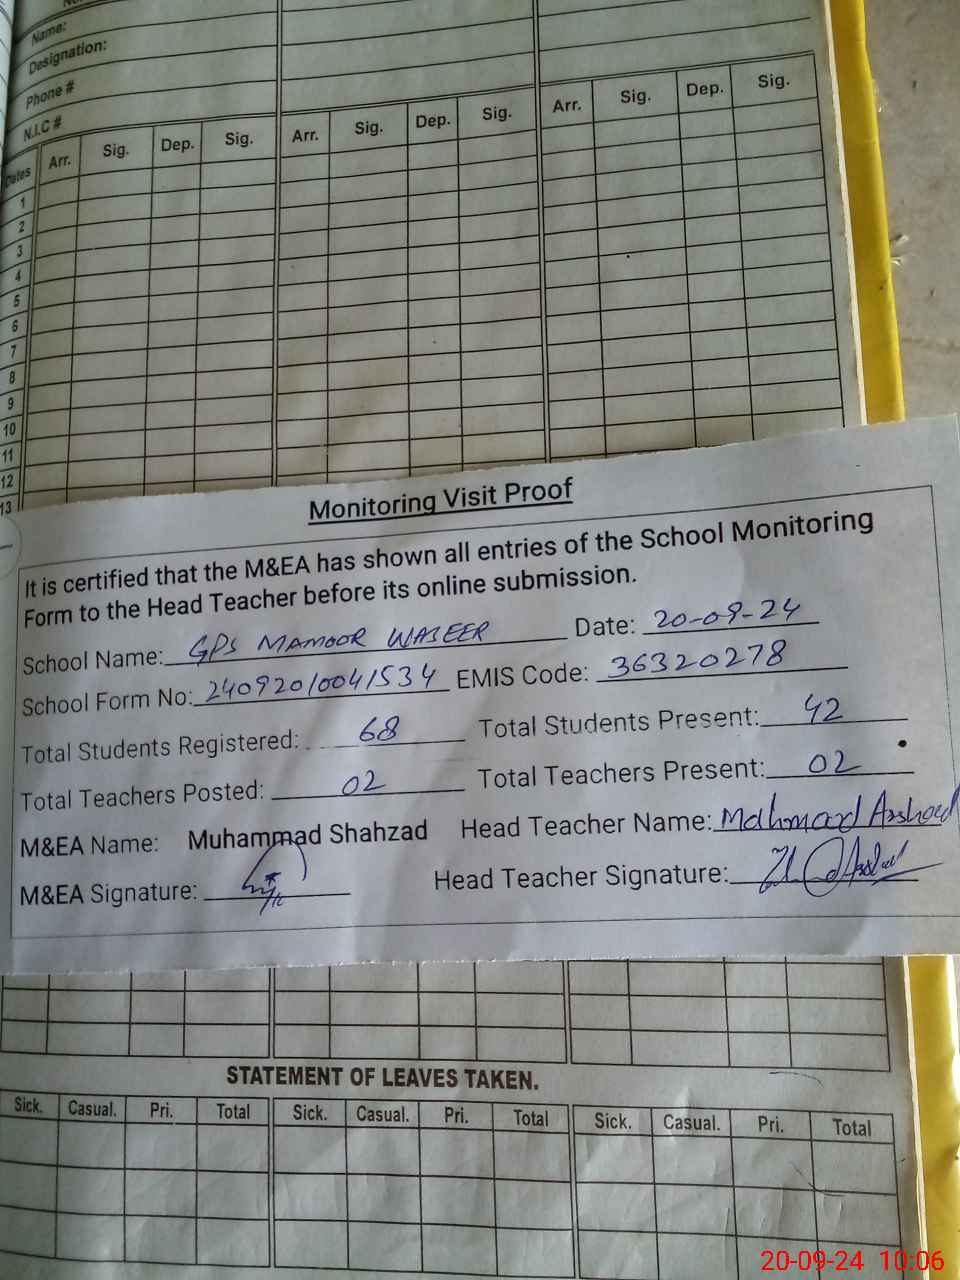 Name:
Designation:
Phone #
N.I.C #
Dates Arr. Sig. Dep. Sig. Arr. Sig. Dep. Sig. Arr. Sig. Dep. Sig.
1
2
3
4
5
6
7
8
9
10
11
12
13
Monitoring Visit Proof
It is certified that the M&EA has shown all entries of the School Monitoring
Form to the Head Teacher before its online submission.
School Name: GPS MAMOOR WASEER Date: 20-09-24
School Form No: 24092010041534 EMIS Code: 36320278
Total Students Registered: 68 Total Students Present: 42
Total Teachers Posted: 02 Total Teachers Present: 02
M&EA Name: Muhammad Shahzad Head Teacher Name: Mahmood Arshad
M&EA Signature: Head Teacher Signature:
STATEMENT OF LEAVES TAKEN.
Sick. Casual. Pri. Total Sick. Casual. Pri. Total Sick. Casual. Pri. Total
20-09-24 10:06